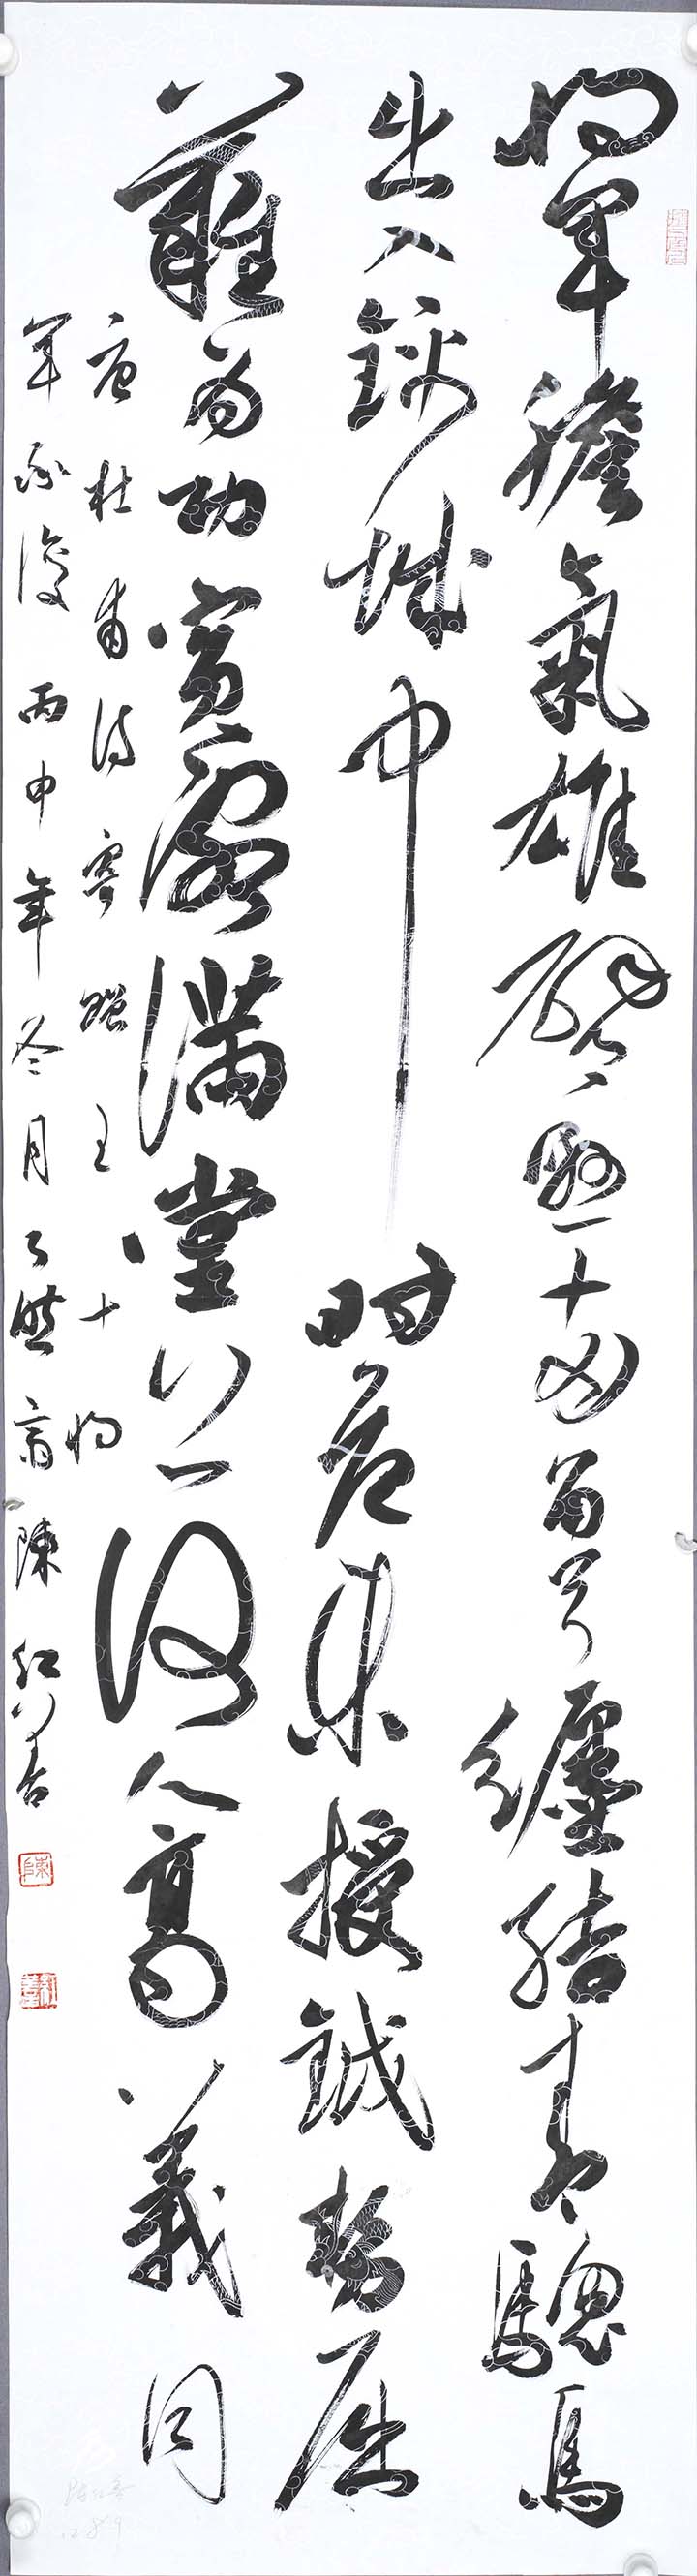 將軍膽氣雄臂懸兩角弓纏結青驄馬
出入錦城中時危未授鉞勢屈
難為功賓客滿堂上何人高義同
唐杜甫詩寄贈王十將
軍承俊丙申年冬月了然齋陳紅善
陳